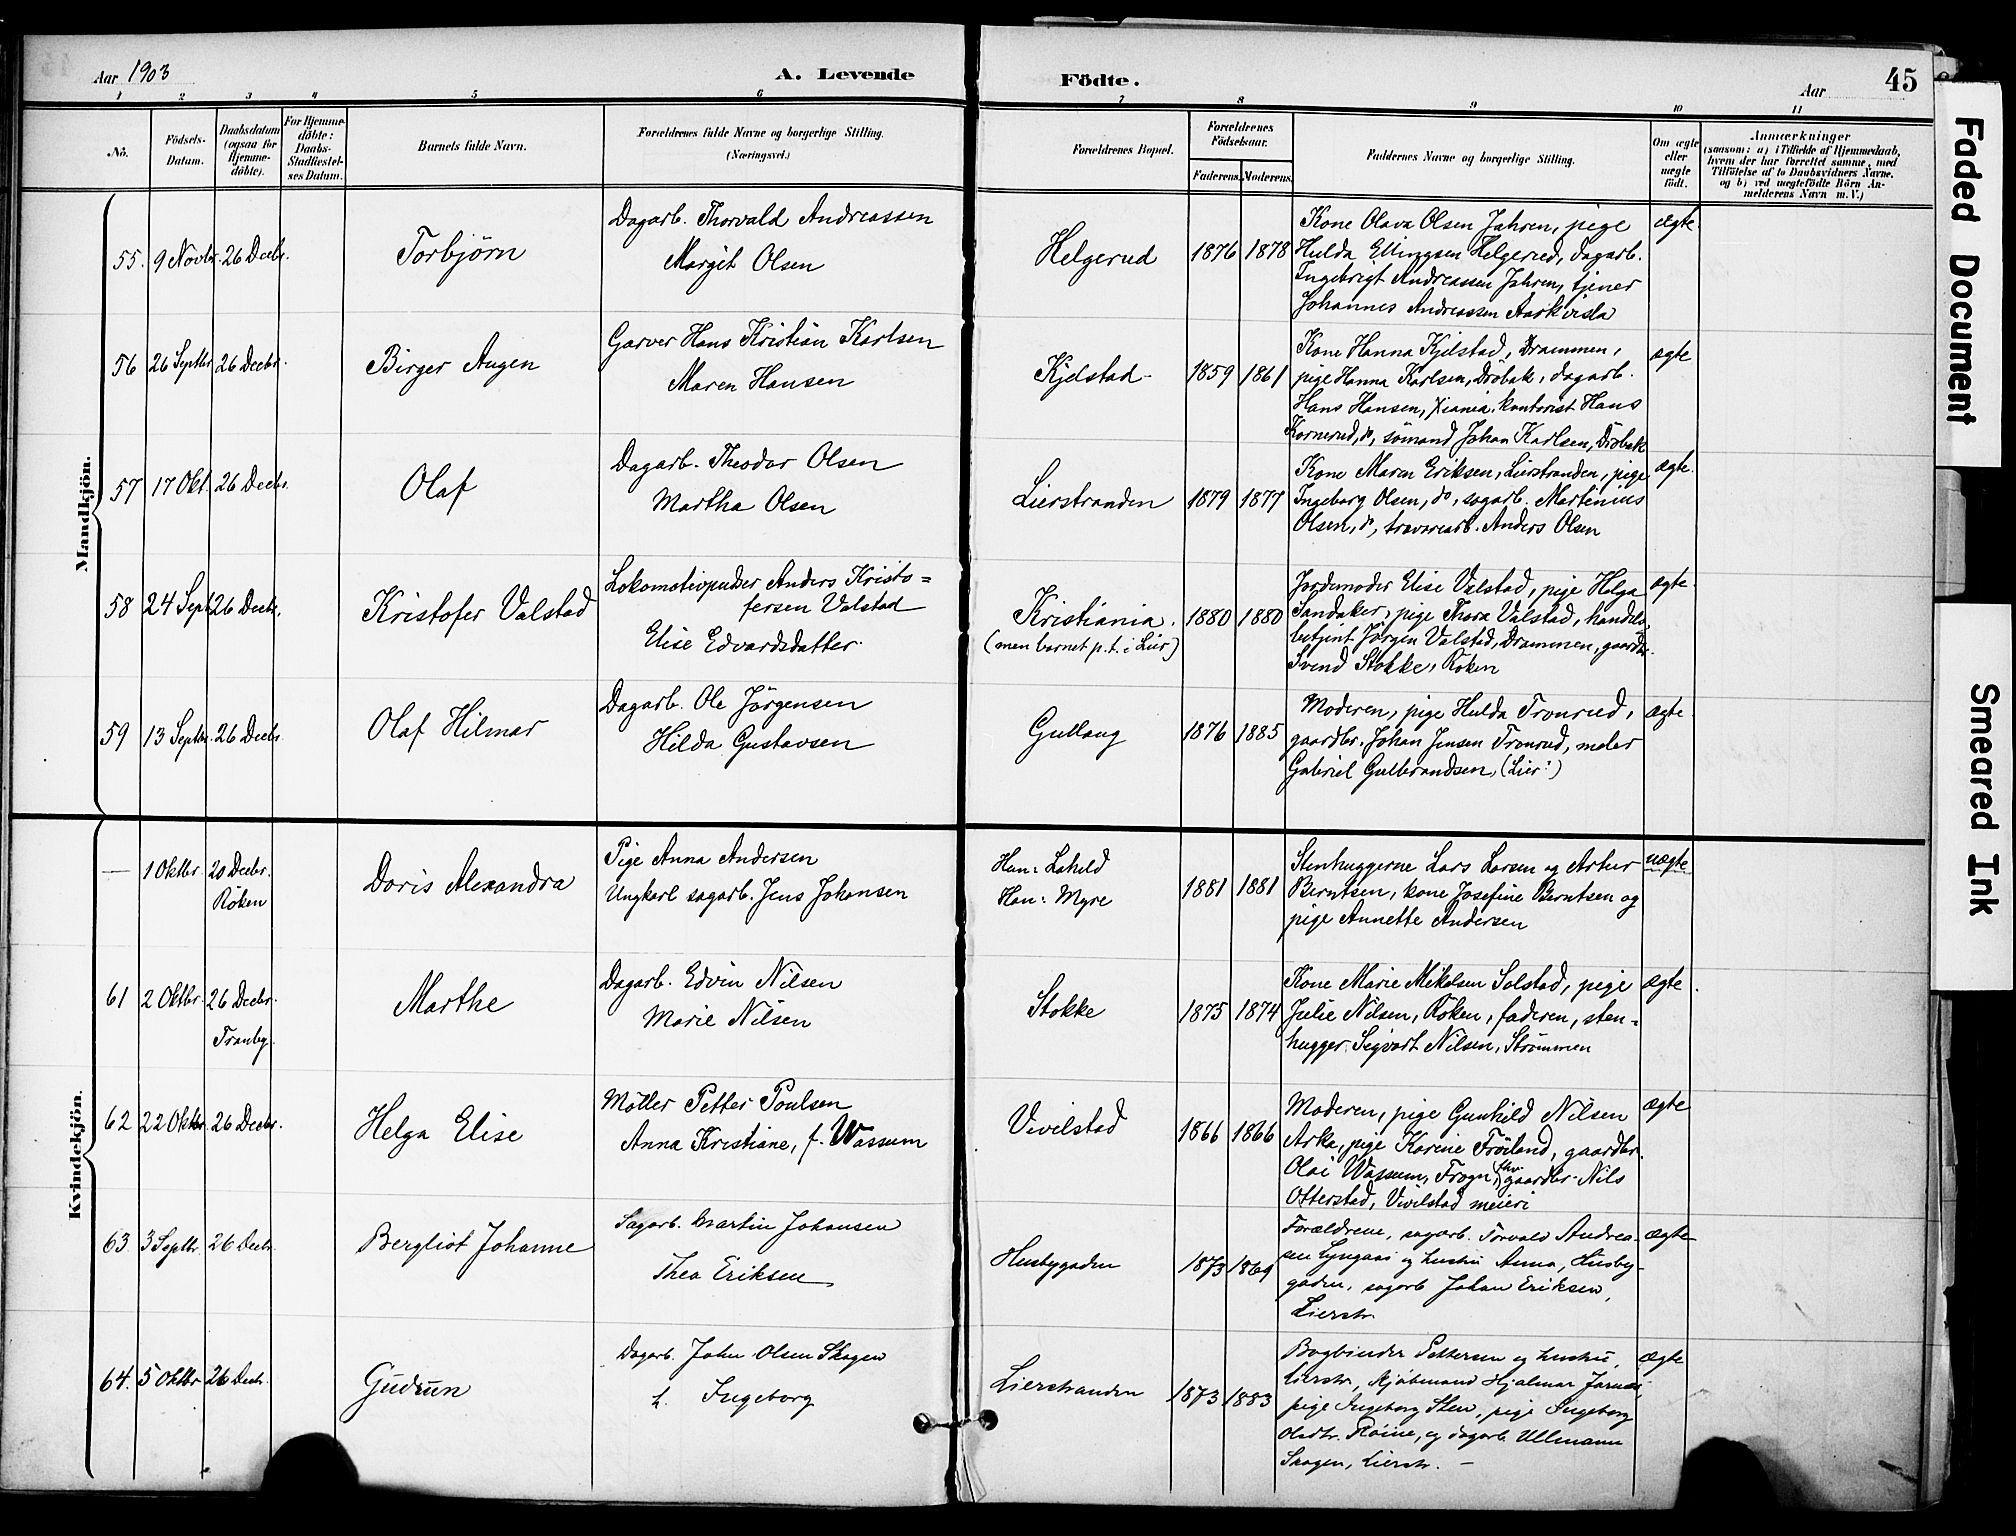 Aar 1903
A. Levende
Födte.
Aar
45
1 2 3 4 5 6 7 8 9 10 11
No.
Födsels-
Datum.
Daabsdatum
(ogsaa for
Hjemme-
döbte).
For Hjemme-
döbte:
Daabs-
Stadfæstel-
ses Datum.
Barnets fulde Navn.
Forældrenes fulde Navne og borgerlige Stilling.
(Næringsvei.)
Forældrenes Bopæl.
Forældrenes
Födselsaar.
Faderens. Moderens.
Faddernes Navne og borgerlige Stilling.
Om ægte
eller
uægte
født.
Anmærkninger
(saasom: a) i Tilfælde af Hjemmedaab,
hvem der har forrettet samme, med
Tilföielse af to Daabsvidners Navne,
og b) ved uægtefödte Börn An-
melderens Navn m. V.)
Mandkjön.
55. 9 Novbr. 26 Decbr.
Torbjørn
Dagarb. Thorvald Andreassen
Margit Olsen
Helgerud
1876 1878
Kone Olava Olsen Jahren, pige
Hulda Ellingsen Helgerud, dagarb.
Ingebrigt Andreassen Jahren, tjener
Johannes Andreassen Aarkvisla
ægte
56 26 Septbr 26 Decbr.
Birger Augen
Garver Hans Kristian Karlsen
Maren Hansen
Kjelstad
1859 1861
Kone Hanna Kjelstad, Drammen,
pige Hanna Karlsen, Drøbak, dagarb.
Hans Hansen, Xiania, kontorist Hans
Kornerud, do, sømand Johan Karlsen, Drøbak
ægte
57 17 Okt. 26 Decbr.
Olaf
Dagarb. Theodor Olsen
Martha Olsen
Lierstranden
1879 1877
Kone Maren Eriksen, Lierstranden, pige
Ingeborg Olsen, do, sagarb. Martinius
Olsen, do, travarearb. Anders Olsen
ægte.
58 24 Sept. 26 Decbr.
Kristofer Valstad
Lokomotivpudser Anders Kristo=
fersen Valstad
Elise Edvardsdatter.
Kristiania.
(men barnet p.t. i Lier)
1880 1880
Jordemoder Elise Valstad, pige Helga
Sandaker, pige Thora Valstad, handels-
betjent Jørgen Valstad, Drammen, gaardbr.
Svend Stokke, Røken
ægte.
59 13 Septbr. 26 Decbr.
Olaf Hilmar
Dagarb. Ole Jörgensen
Hilda Gustavsen
Gullaug
1876 1885
Moderen, pige Hulda Tronrud,
gaardbr. Johan Jensen Tronrud, maler
Gabriel Gulbrandsen, (Lier.)
ægte.
Kvindekjön.
— 1 Oktbr. 20 Decbr.
Röken
Doris Alexandra
Pige Anna Andersen
Ungkarl sagarb. Jens Johansen
Hun: Laheld
Han: Myre
1881 1881
Stenhuggerne Lars Larsen og Artur
Berntsen, kone Josefine Berntsen og
pige Annette Andersen
uægte
61 2 Oktbr. 26 Decbr.
Tranby.
Marthe
Dagarb. Edvin Nilsen
Marie Nilsen
Stokke
1875 1874
Kone Marie Mikalsen Solstad, pige
Julie Nilsen, Röken, faderen, sten-
hugger Sigvart Nilsen, Strømmen
ægte.
62 22 Oktbr. 26 Decbr.
Helga Elise
Møller Petter Poulsen
Anna Kristiane, f. Wassum
Vivelstad
1866 1866
Moderen, pige Gunhild Nilsen
Arka, pige Karine Fröiland, gaardbr.
Olai Wassum, Frogn, fhv. gaardbr. Nils
Otterstad, Vivilstad meieri
ægte
63. 3 Septbr. 26 Decbr.
Bergliot Johanne
Sagarb. Martin Johansen
Thea Eriksen
Husbygaden
1873 1869
Forældrene, sagarb. Torvald Andrea-
sen Lyngaas og hustru Anna, Husby-
gaden, sagarb Johan Eriksen,
Lierstr.
ægte
64. 5 Oktbr 26 Decbr.
Gudrun
Dagarb. John Olsen Skogen
h. Ingeborg
Lierstranden
1873 1883
Bogbinder Pettersen og hustru,
Lierstr, Kjöbmand Hjalmar
pige Ingeborg Sten, pige Ingeborg
Olsdtr. Röine, og dagarb. Ullmann
Skogen, Lierstr. —
ægte
Faded Document
Smeared Ink